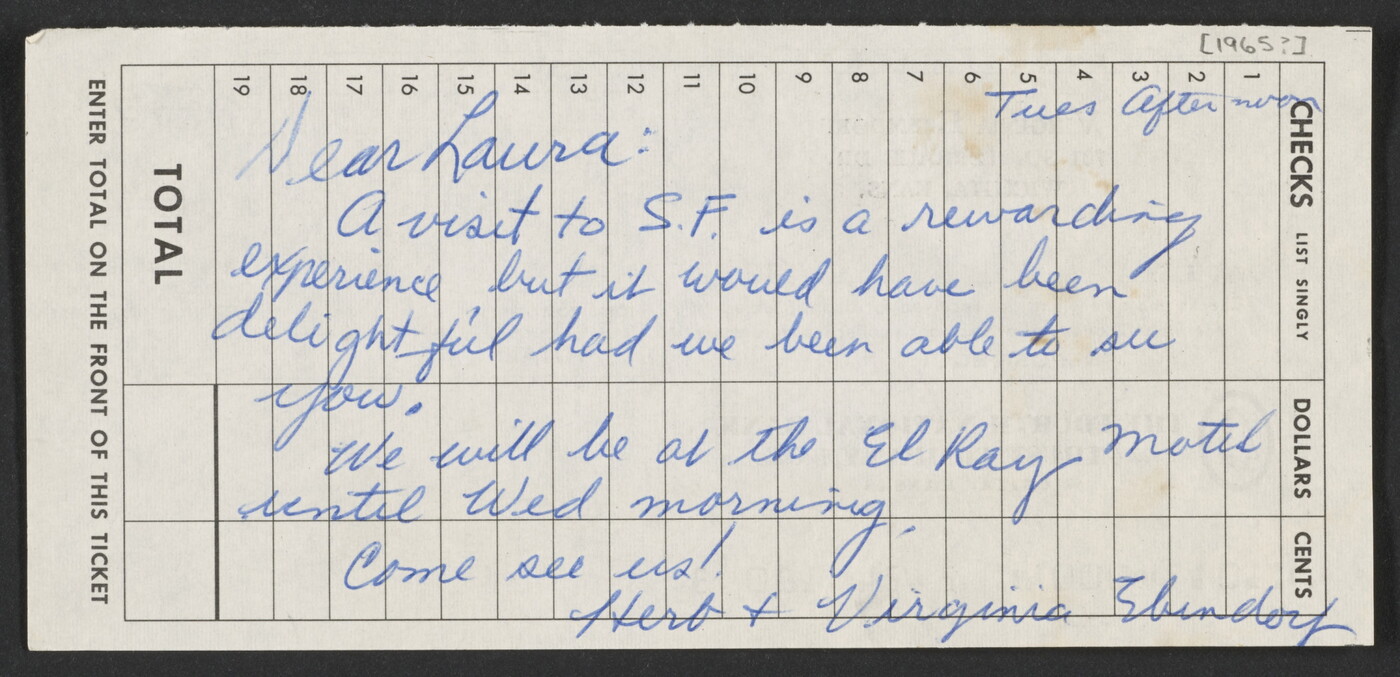 [1965?]
Tues Afternoon
Dear Laura:
A visit to S.F. is a rewarding
experience but it would have been
delightful had we been able to see
you.
We will be at the El Ray Motel
until Wed morning.
Come see us!
Herb + Virginia Ebendorf
CHECKS LIST SINGLY
DOLLARS
CENTS
1
2
3
4
5
6
7
8
9
10
11
12
13
14
15
16
17
18
19
TOTAL
ENTER TOTAL ON THE FRONT OF THIS TICKET